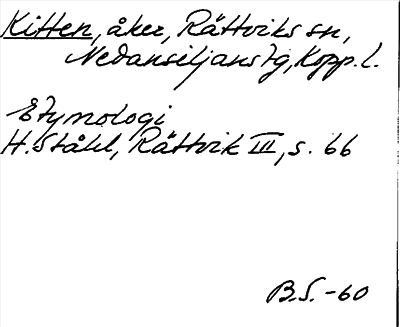 Kitten, åker, Rättviks sn,
Nedansiljans tg, Kopp. l.
Etymologi
H. Ståhl, Rättvik III, s. 66
B.S. -60